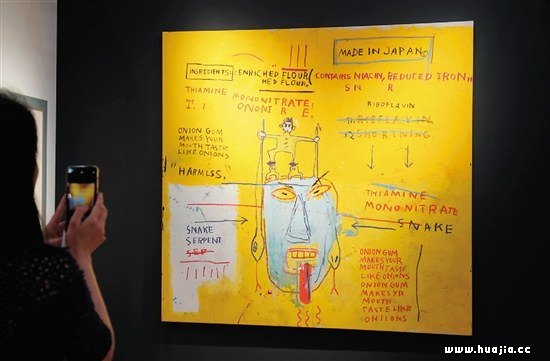 MADE IN JAPAN©
INGREDIENTS: ENRICHED FLOUR(
HED FLOUR,
CONTAINS NIACIN, REDUCED IRON
S N R
THIAMINE MONONITRATE,
ONONI R E,
RIBOFLAVIN
ONION GUM
MAKES YOUR
MOUTH TASTE
LIKE ONIONS
"HARMLSS.
THIAMINE
MONONITRATE
SNAKE
SNAKE
SERPENT
ONION GUM
MAKES YOUR
MOUTH TASTE
LIKE ONIONS
ONION GUM
MAKES YR
MOUTH
TASTE LIKE
ONIIONS
www.huajia.cc